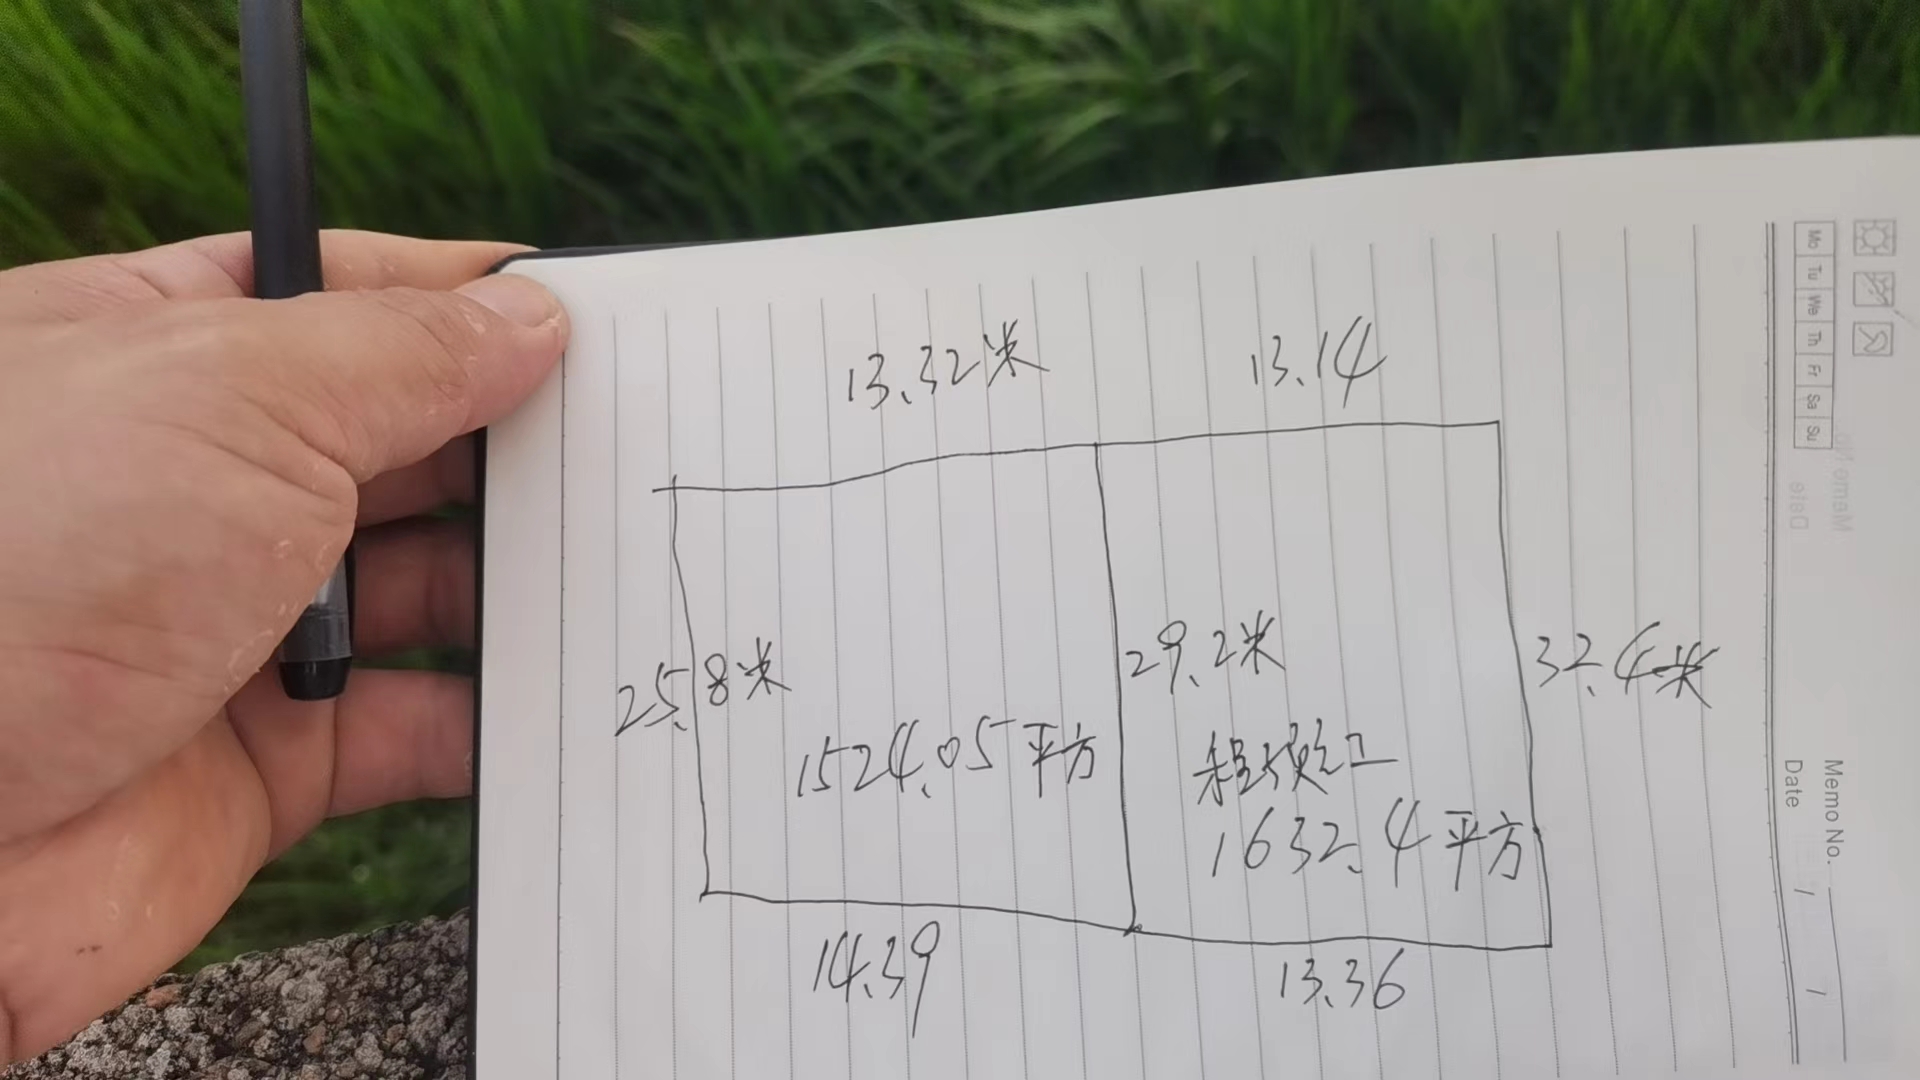 13.32米
13.14
25.8米
29.2米
32.4米
1524.05平方
1632.4平方
14.39
13.36
Mo Tu We Th Fr Sa Su
Memo No.
Date / /